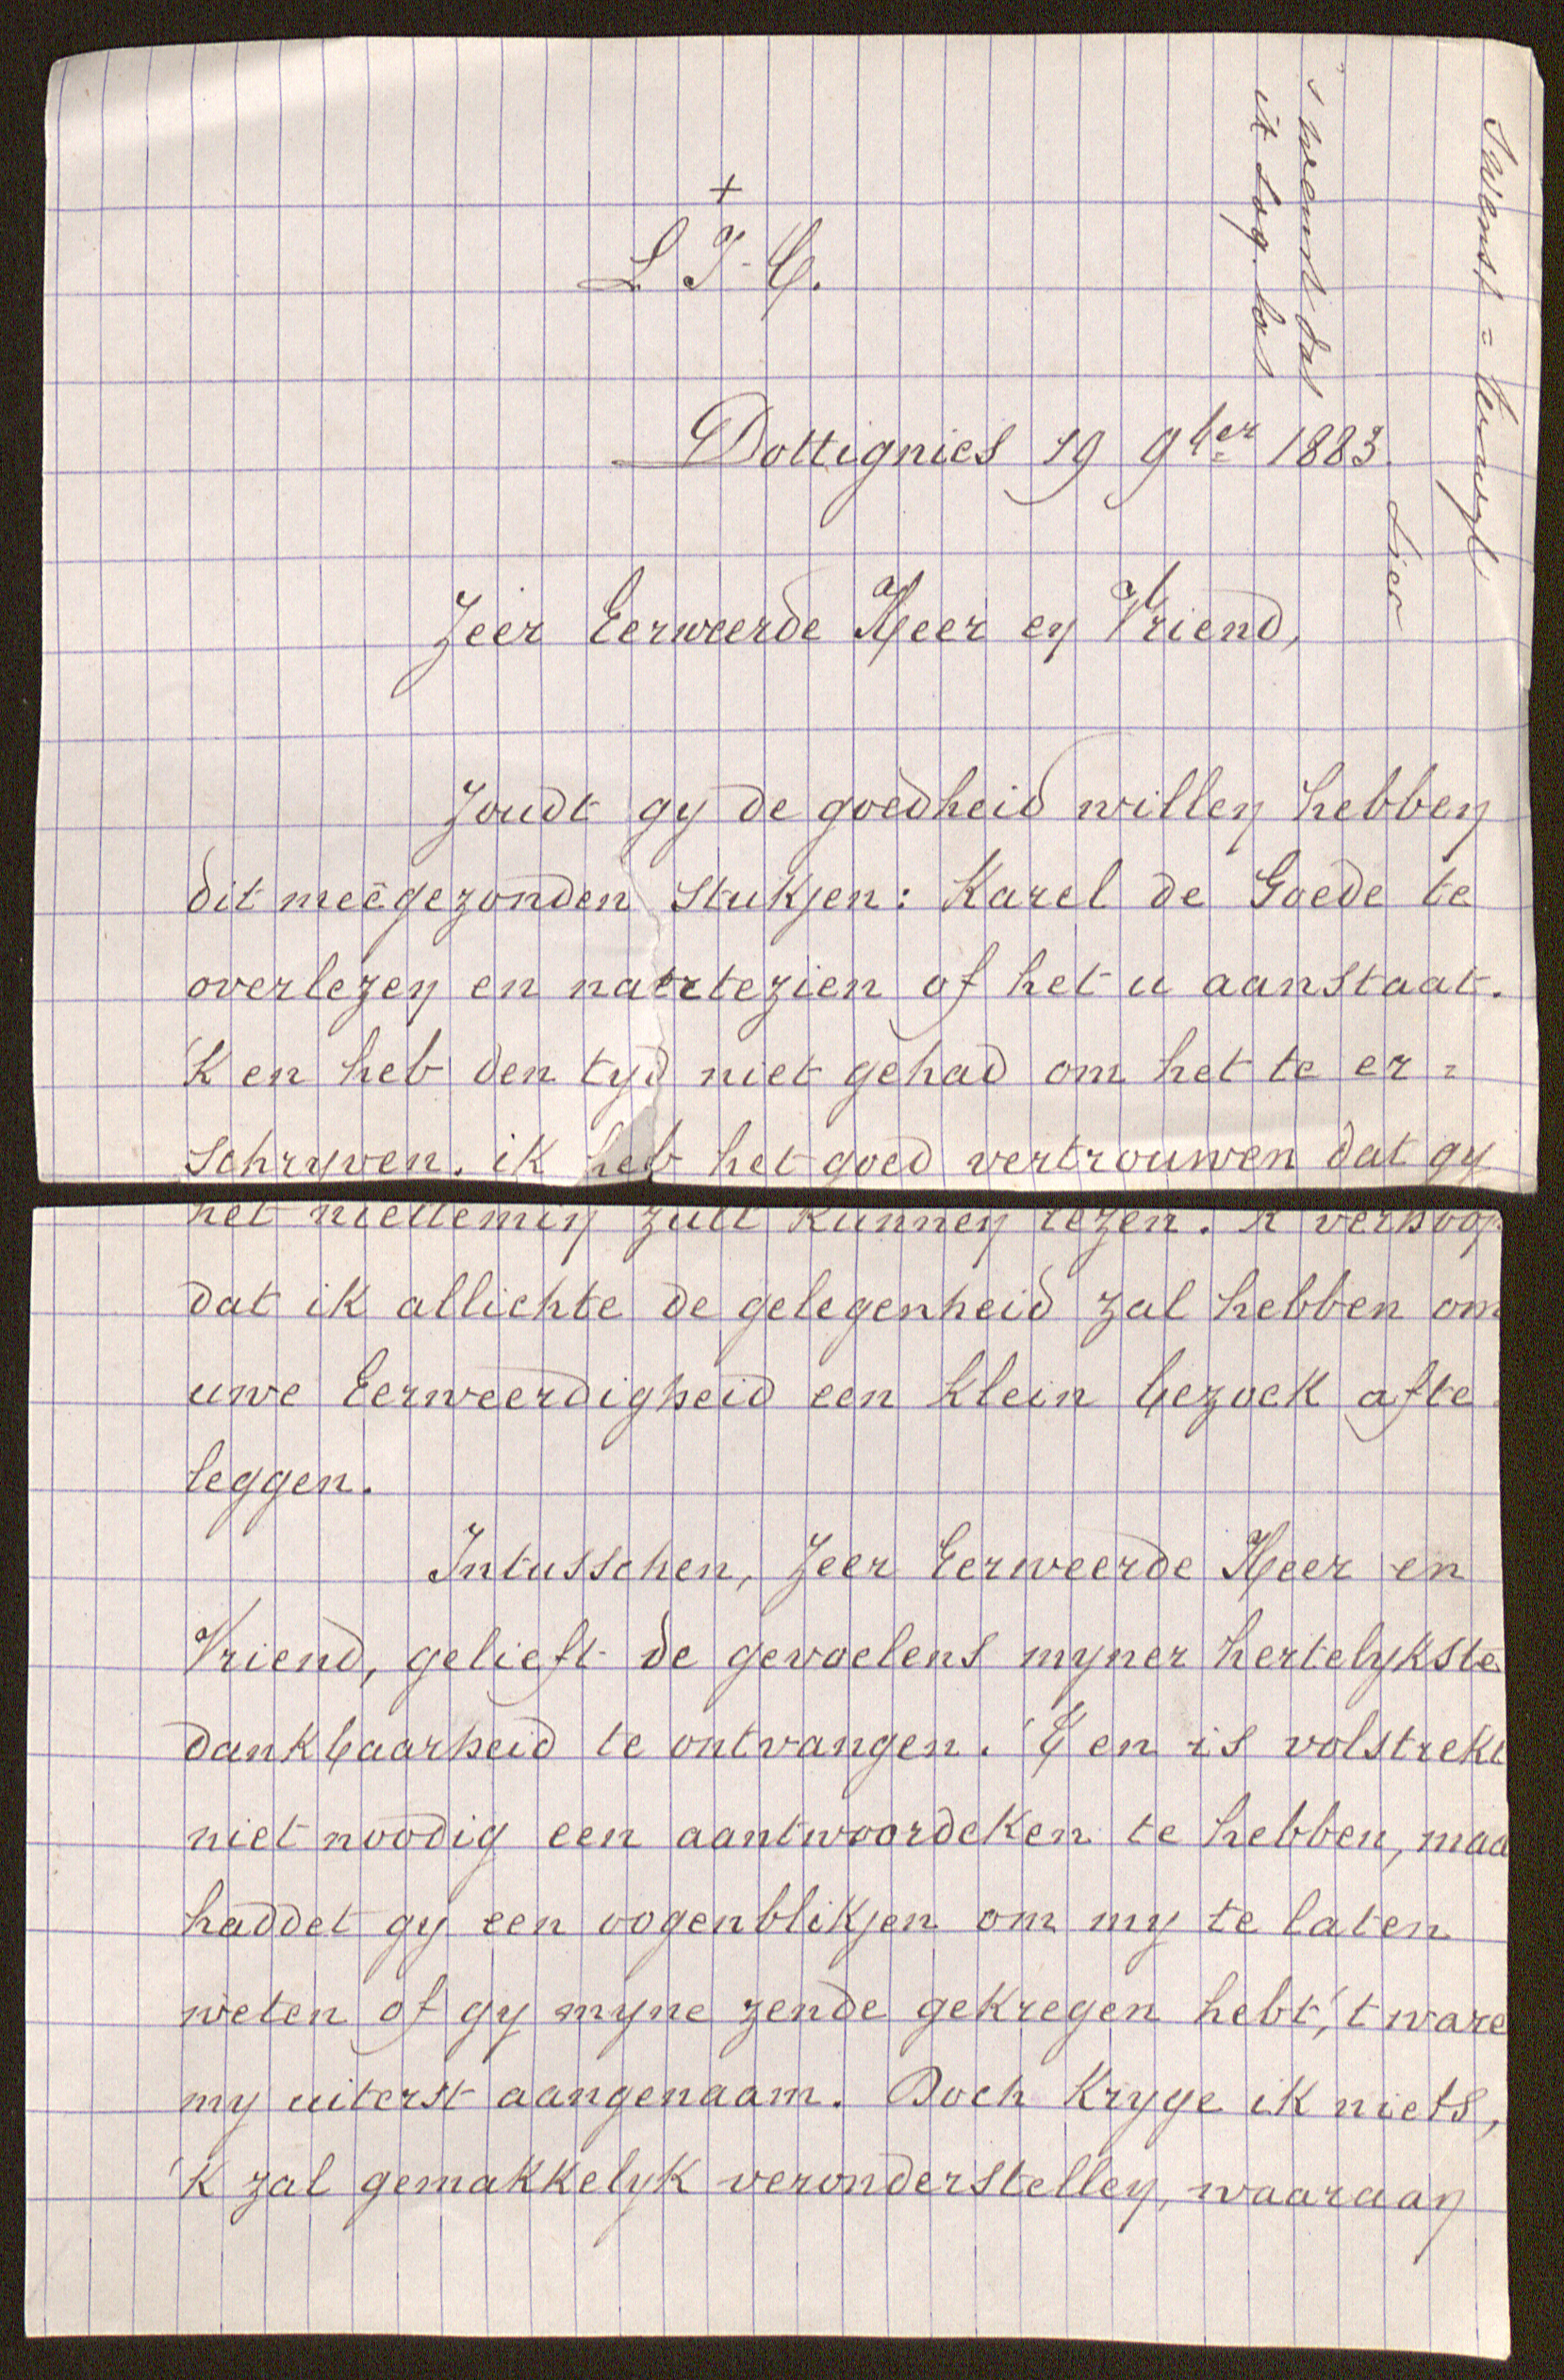 +
L. J. - C.
Dottignies 19 9ber 1883.
Zeer Eerweerde Heer en Vriend,
Zoudt gy de goedheid willen hebben
dit meêgezonden stukjen: Karel de Goede te
overlezen en natezien of het u aanstaat.
'K en heb den tyd niet gehad om het te er =
schryven. ik heb het goed vertrouwen dat gy
het niettemin zult kunnen lezen. 'K verhoop
dat ik allichte de gelegenheid zal hebben om
uwe Eerweerdigheid een klein bezoek afte
leggen.
Intusschen, Zeer Eerweerde Heer en
Vriend, gelieft de gevoelens myner hertelykste
dankbaarheid te ontvangen. 'T en is volstrekt
niet noodig een aantwoordeken te hebben, maa
haddet gy een oogenblikjen om my te laten
weten of gy myne zende gekregen hebt, 't ware
my uiterst aangenaam. Doch kryge ik niets,
'k zal gemakkelyk veronderstellen, waaraan